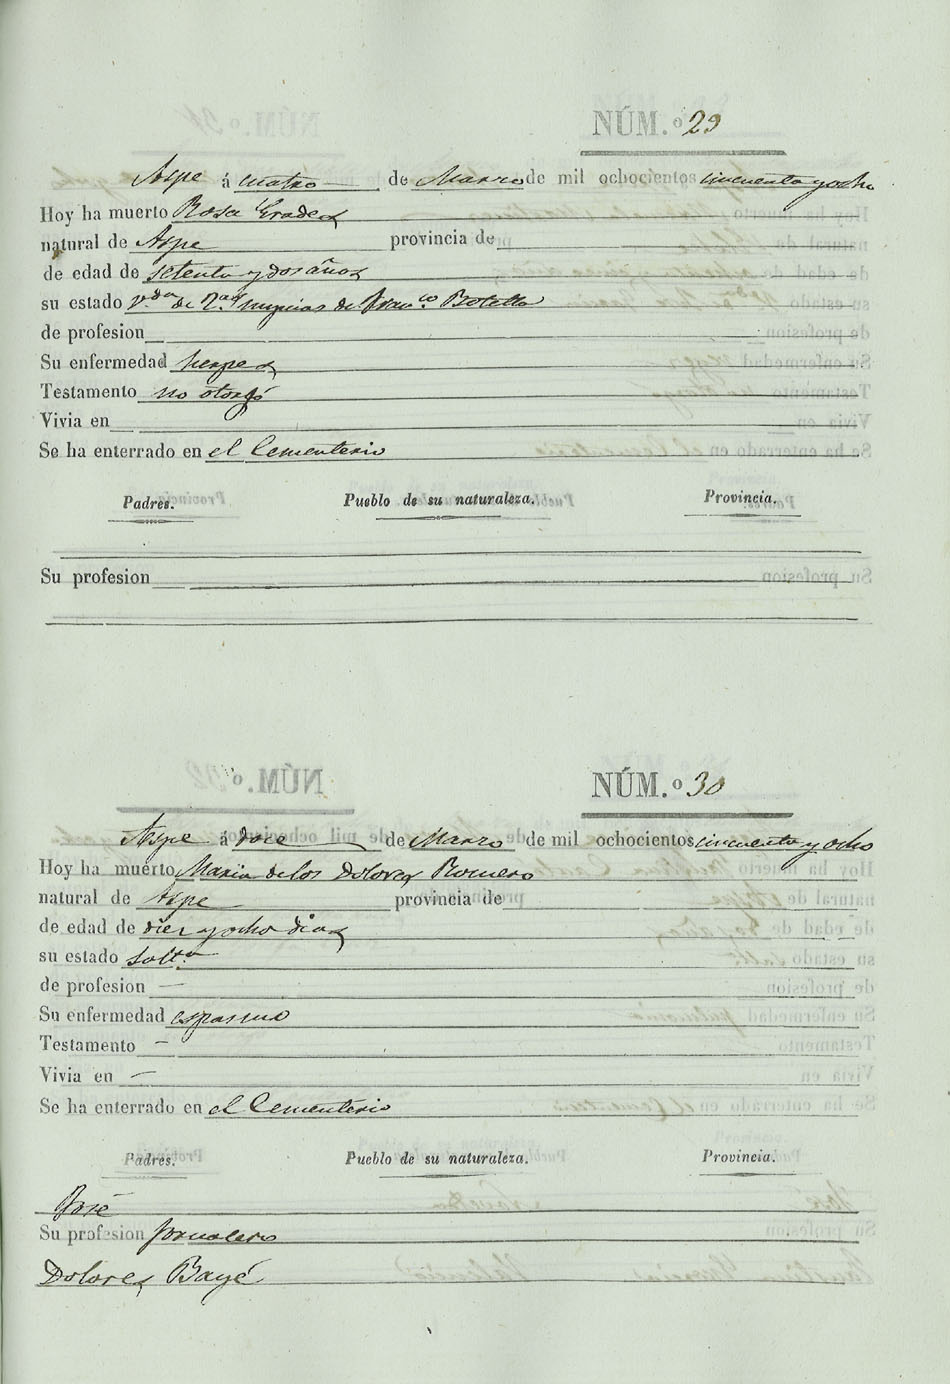 NÚM.º 29
Aspe á cuatro de Marzo de mil ochocientos cincuenta y ocho
Hoy ha muerto Rosa Grades
natural de Aspe provincia de
de edad de setenta y dos años
su estado V.da de 2.as nupcias de Fran.co Botella
de profesion
Su enfermedad herpes
Testamento no otorgó
Vivia en
Se ha enterrado en el Cementerio
Padres. Pueblo de su naturaleza. Provincia.
Su profesion
NÚM.º 30
Aspe á doce de Marzo de mil ochocientos cincuenta y ocho
Hoy ha muerto Maria de los Dolores Romero
natural de Aspe provincia de
de edad de diez y ocho dias
su estado Solt.a
de profesion —
Su enfermedad espasmo
Testamento —
Vivia en —
Se ha enterrado en el Cementerio
Padres. Pueblo de su naturaleza. Provincia.
José
Su profesion jornalero
Dolores Bayé